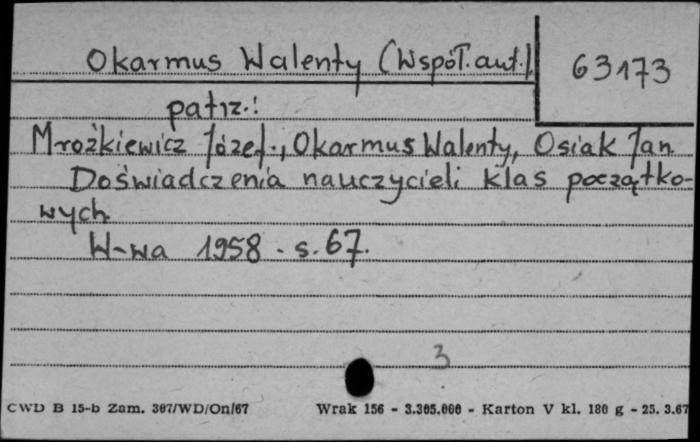 Okarmus Walenty (Współ.aut.). 63173
patrz.:
Mrożkiewicz Józef., Okarmus Walenty, Osiak Jan
Doświadczenia nauczycieli klas początko-
wych.
W-wa 1958 - s. 67.
3
CWD B 15-b Zam. 307/WD/On/67 Wrak 156 - 3.305.000 - Karton V kl. 180 g - 25. 3.67